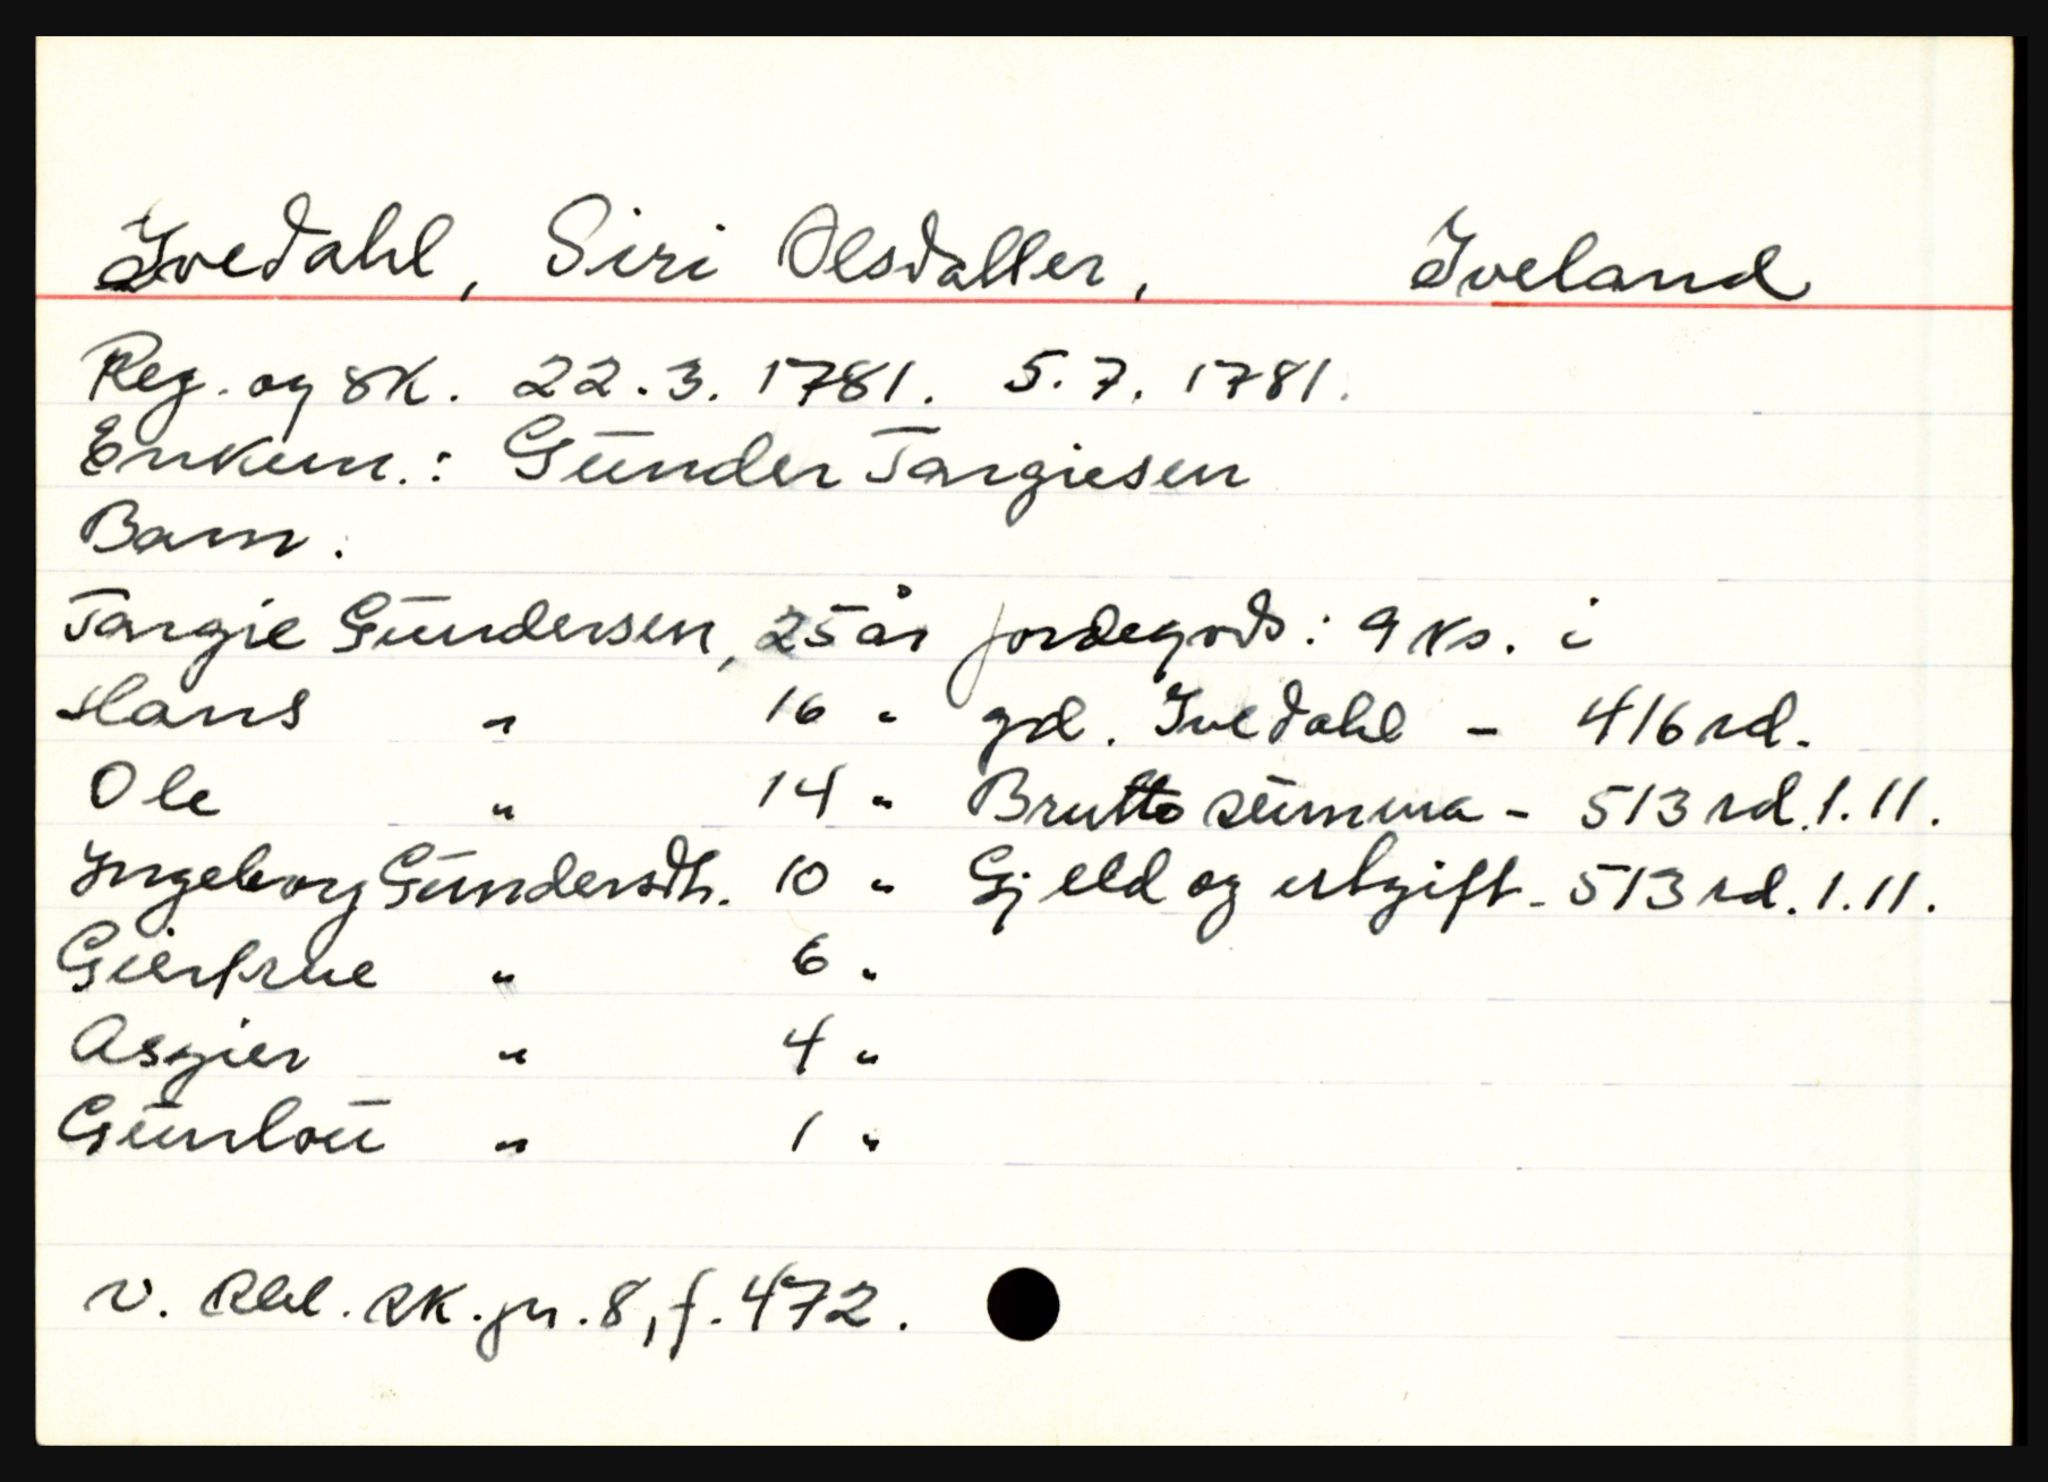 Ivedahl, Siri Olsdatter, Iveland
Reg. og sk. 22.3.1781. 5.7.1781.
Enkem.: Gunder Targiesen
Barn:
Targie Gundersen, 25 år jordegods: 9 ks. i
Hans " 16 " gd. Ivedahl - 416 rd.
Ole " 14 " Brutto summa - 513 rd. 1.11.
Ingeborg Gundersdtr. 10 " Gjeld og utgift - 513 rd. 1.11.
Gierfrue " 6 "
Asgier " 4 "
Gunlou " 1 "
v. Rbl. sk.pr. 8, f. 472.